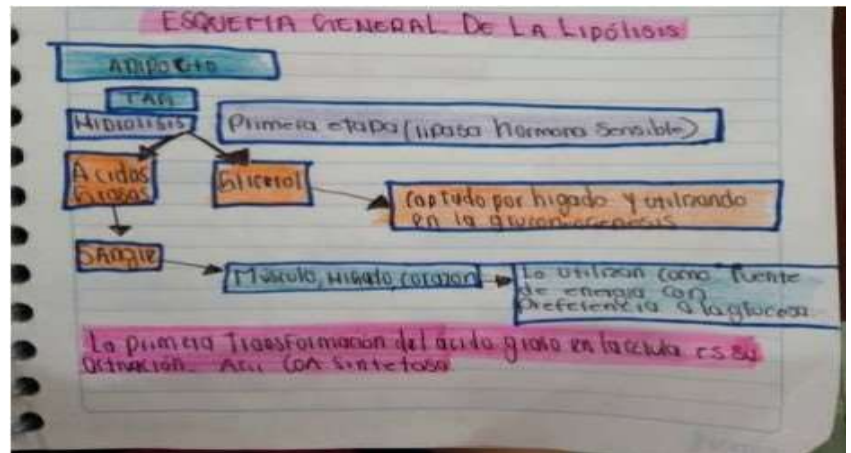 ESQUEMA GENERAL DE LA LIPÓLISIS
ADIPOCITO
TAG
HIDROLISIS
Primera etapa (lipasa hormona sensible)
Acidos
Grasos
Glicerol
Captado por higado y utilizando
en la gluconeogenesis
SAngre
Músculo, Higado, corazon
Lo utilizan como fuente
de energia con
preferencia a la glucosa
La primera Transformación del acido graso en la celula es su
activación. Acil COA Sintetasa